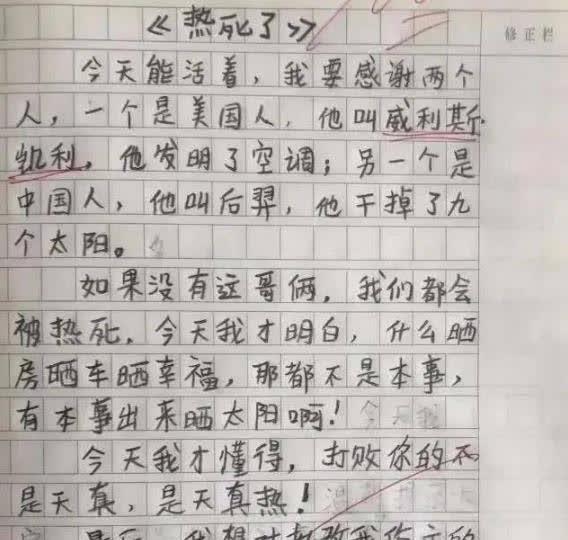 《热死了》
修正栏
今天能活着，我要感谢两个
人，一个是美国人，他叫威利斯·
凯利，他发明了空调；另一个是
中国人，他叫后羿，他干掉了九
个太阳。
如果没有这哥俩，我们都会
被热死，今天我才明白，什么晒
房晒车晒幸福，那都不是本事，
有本事出来晒太阳啊！
今天我才懂得，打败你的不
是天真，是天真热！